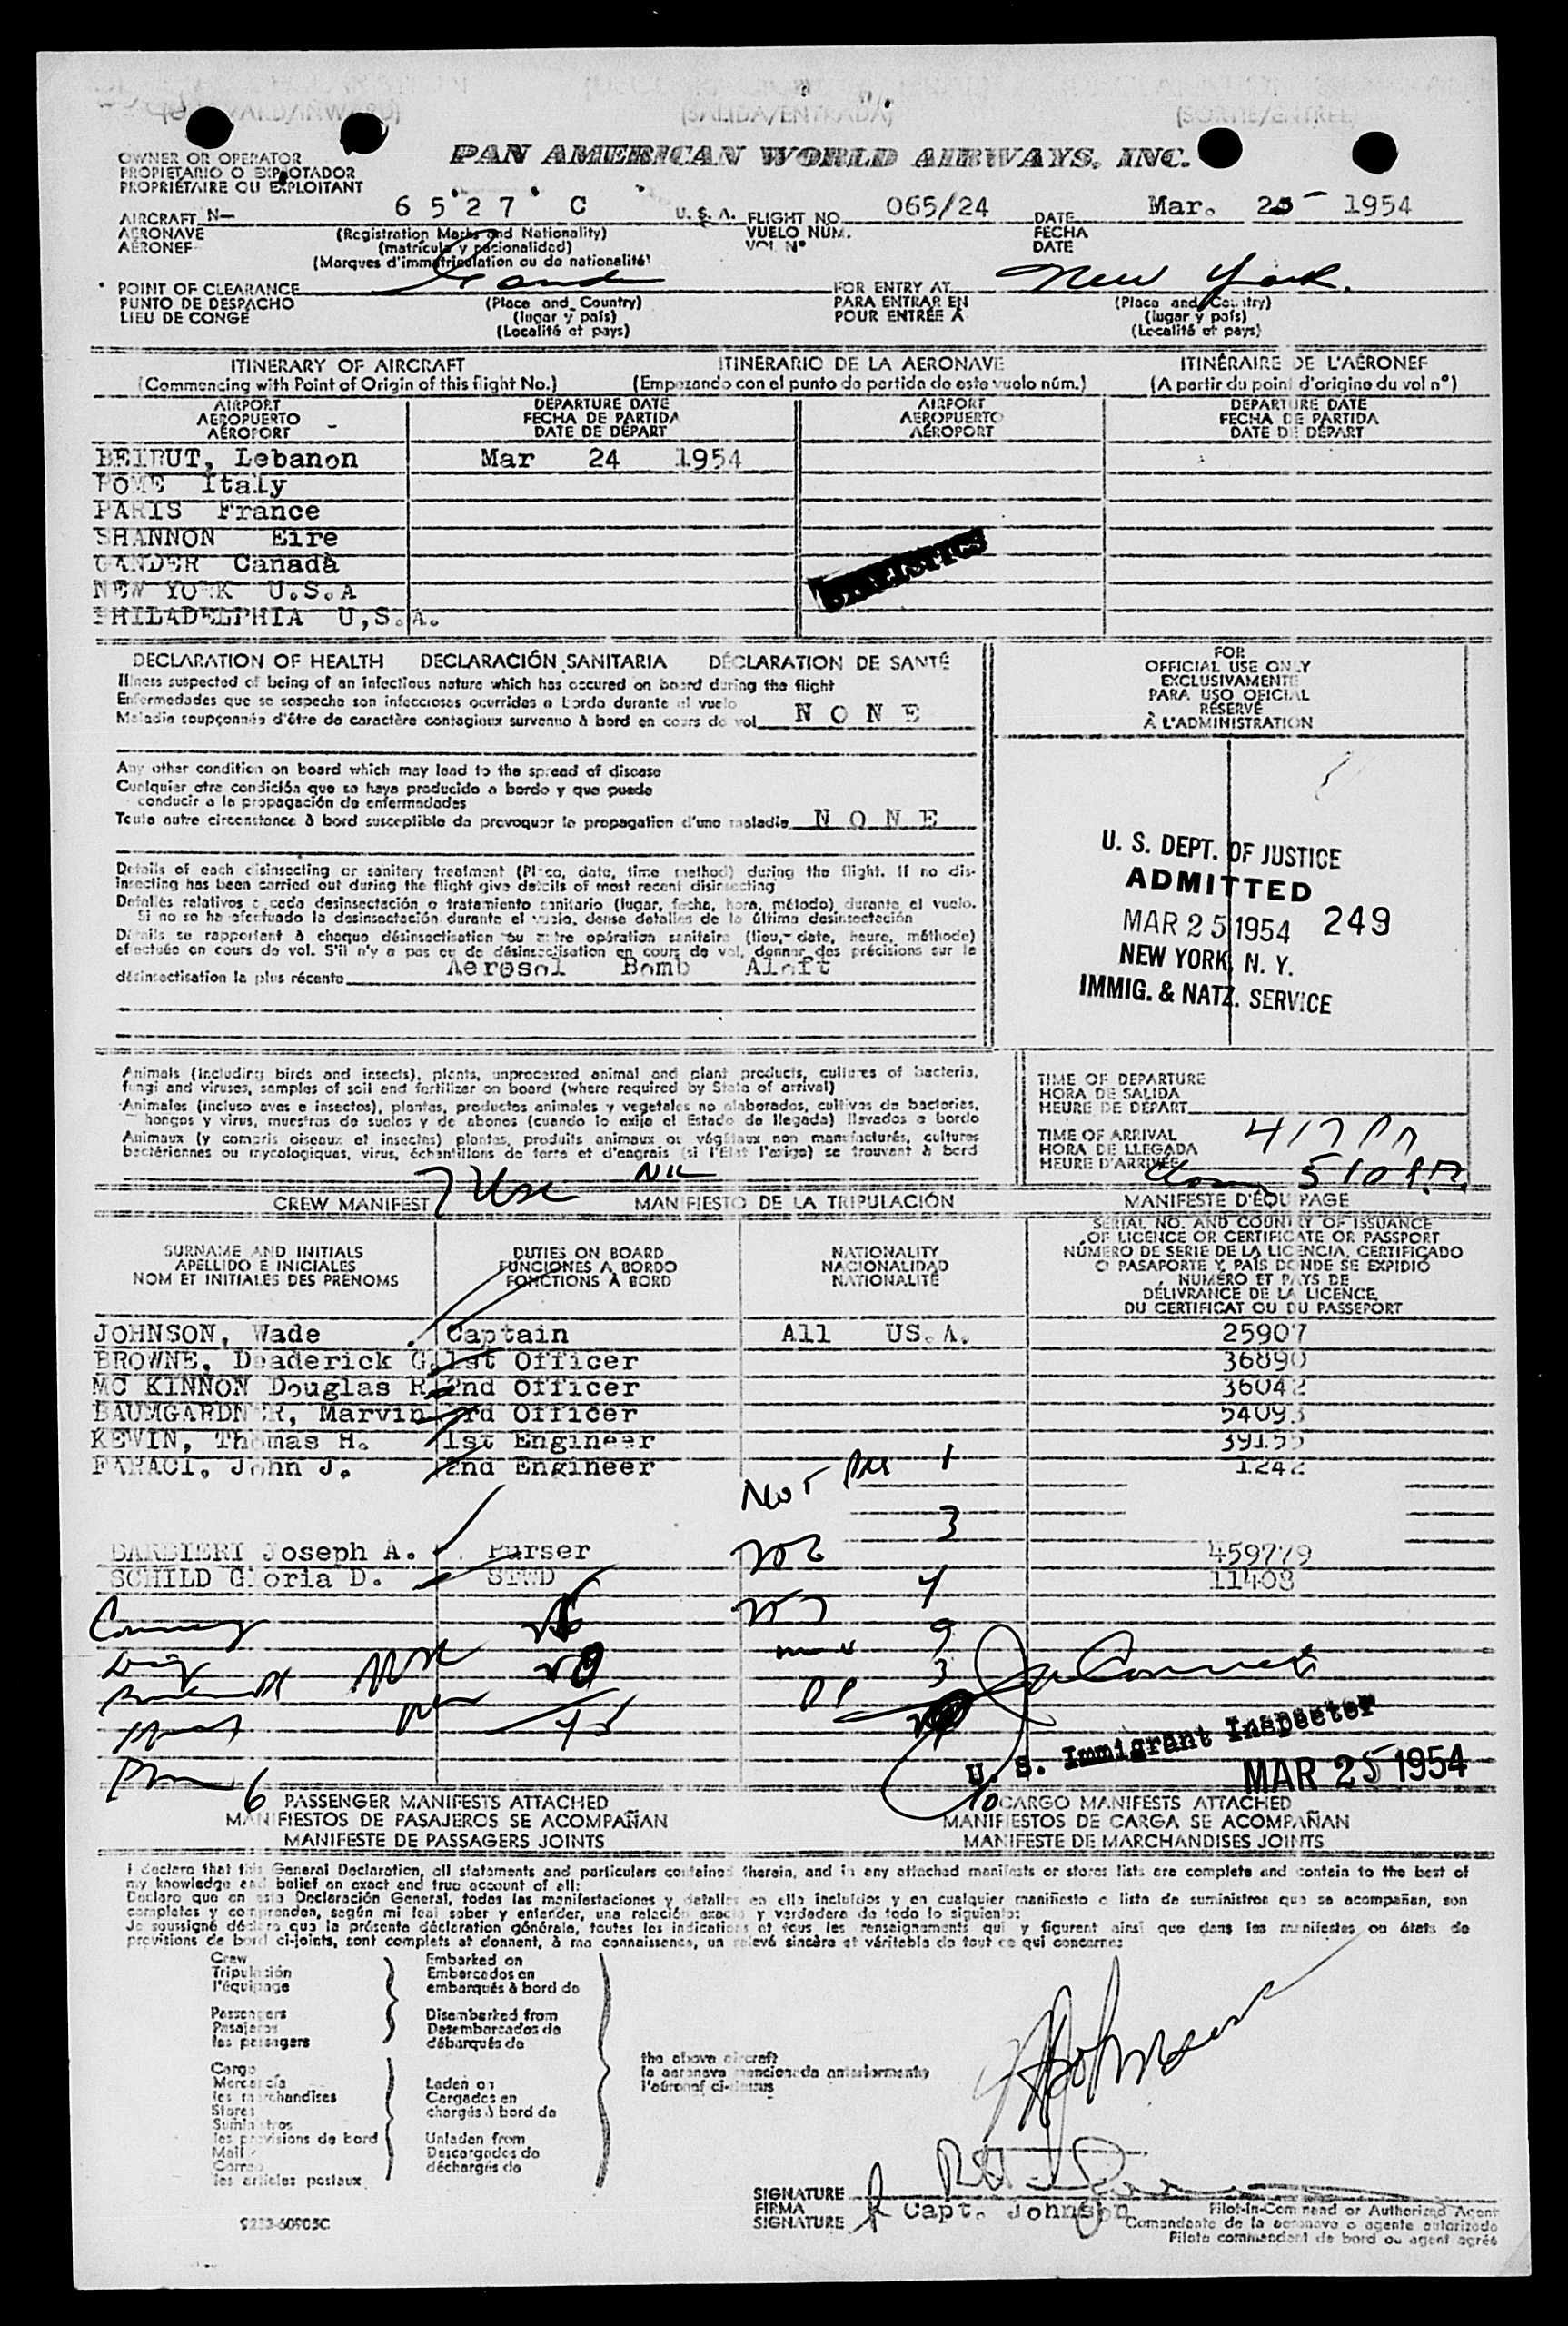 (SALIDA/ENTRADA)
OWNER OR OPERATOR
PROPIETARIO O EXPLOTADOR
PROPRIÉTAIRE OU EXPLOITANT
PAN AMERICAN WORLD AIRWAYS, INC.
AIRCRAFT N— 6527 C U.S.A. FLIGHT NO. 065/24 DATE Mar. 25 1954
AERONAVE (Registration Marks and Nationality) VUELO NÚM. FECHA
AÉRONEF (matrícula y nacionalidad) VOL Nº DATE
(Marques d'immatriculation ou de nationalité)
POINT OF CLEARANCE Gander FOR ENTRY AT New York.
PUNTO DE DESPACHO (Place and Country) PARA ENTRAR EN (Place and Country)
LIEU DE CONGÉ (lugar y país) POUR ENTRÉE À (lugar y país)
(Localité et pays) (Localité et pays)
ITINERARY OF AIRCRAFT ITINERARIO DE LA AERONAVE ITINÉRAIRE DE L'AÉRONEF
(Commencing with Point of Origin of this flight No.) (Empezando con el punto de partida de este vuelo núm.) (A partir du point d'origine du vol nº)
AIRPORT DEPARTURE DATE AIRPORT DEPARTURE DATE
AEROPUERTO FECHA DE PARTIDA AEROPUERTO FECHA DE PARTIDA
AÉROPORT DATE DE DÉPART AÉROPORT DATE DE DÉPART
BEIRUT, Lebanon Mar 24 1954
ROME Italy
PARIS France
SHANNON Eire
GANDER Canada
NEW YORK U.S.A
PHILADELPHIA U,S.A.
STATISTICS
DECLARATION OF HEALTH DECLARACIÓN SANITARIA DÉCLARATION DE SANTÉ
Illness suspected of being of an infectious nature which has occured on board during the flight
Enfermedades que se sospecha son infecciosas ocurridas a bordo durante el vuelo
Maladie soupçonnée d'être de caractère contagieux survenue à bord en cours de vol NONE
Any other condition on board which may lead to the spread of disease
Cualquier otra condición que se haya producido a bordo y que pueda
conducir a la propagación de enfermedades
Toute autre circonstance à bord susceptible de provoquer la propagation d'une maladie NONE
Details of each disinsecting or sanitary treatment (Place, date, time method) during the flight. If no dis-
insecting has been carried out during the flight give details of most recent disinsecting
Detalles relativos a cada desinsectación o tratamiento sanitario (lugar, fecha, hora, método) durante el vuelo.
Si no se ha efectuado la desinsectación durante el vuelo, dense detalles de la última desinsectación
Détails se rapportant à chaque désinsectisation ou autre opération sanitaire (lieu, date, heure, méthode)
effectuée en cours de vol. S'il n'y a pas eu de désinsectisation en cours de vol, donner des précisions sur la
désinsectisation la plus récente Aerosol Bomb Aloft
FOR
OFFICIAL USE ONLY
EXCLUSIVAMENTE
PARA USO OFICIAL
RÉSERVÉ
À L'ADMINISTRATION
U. S. DEPT. OF JUSTICE
ADMITTED
MAR 25 1954 249
NEW YORK, N. Y.
IMMIG. & NATZ. SERVICE
Animals (including birds and insects), plants, unprocessed animal and plant products, cultures of bacteria,
fungi and viruses, samples of soil and fertilizer on board (where required by State of arrival)
Animales (incluso aves e insectos), plantas, productos animales y vegetales no elaborados, cultivos de bacterias,
hongos y virus, muestras de suelos y de abonos (cuando lo exija el Estado de llegada) llevados a bordo
Animaux (y compris oiseaux et insectes) plantes, produits animaux ou végétaux non manufacturés, cultures
bactériennes ou mycologiques, virus, échantillons de terre et d'engrais (si l'État l'exige) se trouvant à bord
NIL
TIME OF DEPARTURE
HORA DE SALIDA
HEURE DE DÉPART
TIME OF ARRIVAL 417 PM
HORA DE LLEGADA
HEURE D'ARRIVÉE 510 P.M.
CREW MANIFEST MANIFIESTO DE LA TRIPULACIÓN MANIFESTE D'ÉQUIPAGE
SURNAME AND INITIALS DUTIES ON BOARD NATIONALITY SERIAL NO. AND COUNTRY OF ISSUANCE
APELLIDO E INICIALES FUNCIONES A BORDO NACIONALIDAD OF LICENCE OR CERTIFICATE OR PASSPORT
NOM ET INITIALES DES PRENOMS FONCTIONS À BORD NATIONALITÉ NÚMERO DE SERIE DE LA LICENCIA, CERTIFICADO
O PASAPORTE Y PAÍS DONDE SE EXPIDIÓ
NUMÉRO ET PAYS DE
DÉLIVRANCE DE LA LICENCE
DU CERTIFICAT OU DU PASSEPORT
JOHNSON, Wade Captain All US.A. 25907
BROWNE, Deaderick G. 1st Officer 36890
MC KINNON Douglas R 2nd Officer 36042
BAUMGARDNER, Marvin 3rd Officer 54093
KEWIN, Thomas H. 1st Engineer 39155
FARACI, John J. 2nd Engineer 1242
NOT 1
3
BARBIERI Joseph A. Purser 202 459779
SCHILD Gloria D. STWD 11408
9
3
U. S. Immigrant Inspector
MAR 25 1954
6 PASSENGER MANIFESTS ATTACHED 10 CARGO MANIFESTS ATTACHED
MANIFIESTOS DE PASAJEROS SE ACOMPAÑAN MANIFIESTOS DE CARGA SE ACOMPAÑAN
MANIFESTE DE PASSAGERS JOINTS MANIFESTE DE MARCHANDISES JOINTS
I declare that this General Declaration, all statements and particulars contained therein, and in any attached manifests or stores lists are complete and contain to the best of
my knowledge and belief an exact and true account of all:
Declaro que en esta Declaración General, todas las manifestaciones y detalles en ella incluídos y en cualquier manifiesto o lista de suministros que se acompañan, son
completos y comprenden, según mi leal saber y entender, una relación exacta y verdadera de todo lo siguiente:
Je soussigné déclare que la présente déclaration générale, toutes les indications et tous les renseignements qui y figurent ainsi que dans les manifestes ou états de
provisions de bord ci-joints, sont complets et donnent, à ma connaissance, un relevé sincère et véritable de tout ce qui concerne:
Crew Embarked on
Tripulación Embarcados en
l'équipage embarqués à bord de
Passengers Disembarked from
Pasajeros Desembarcados de
les passagers débarqués de
the above aircraft
la aeronave mencionada anteriormente
l'aéronef ci-dessus
Cargo
Mercancía Laden on
les marchandises Cargados en
Stores chargés à bord de
Suministros
les provisions de bord Unladen from
Mail Descargados de
Correo déchargés de
les articles postaux
WJohnson
SIGNATURE
FIRMA Capt. Johnson Pilot-in-Command or Authorized Agent
SIGNATURE Comandante de la aeronave o agente autorizado
Pilote commandant de bord ou agent agréé